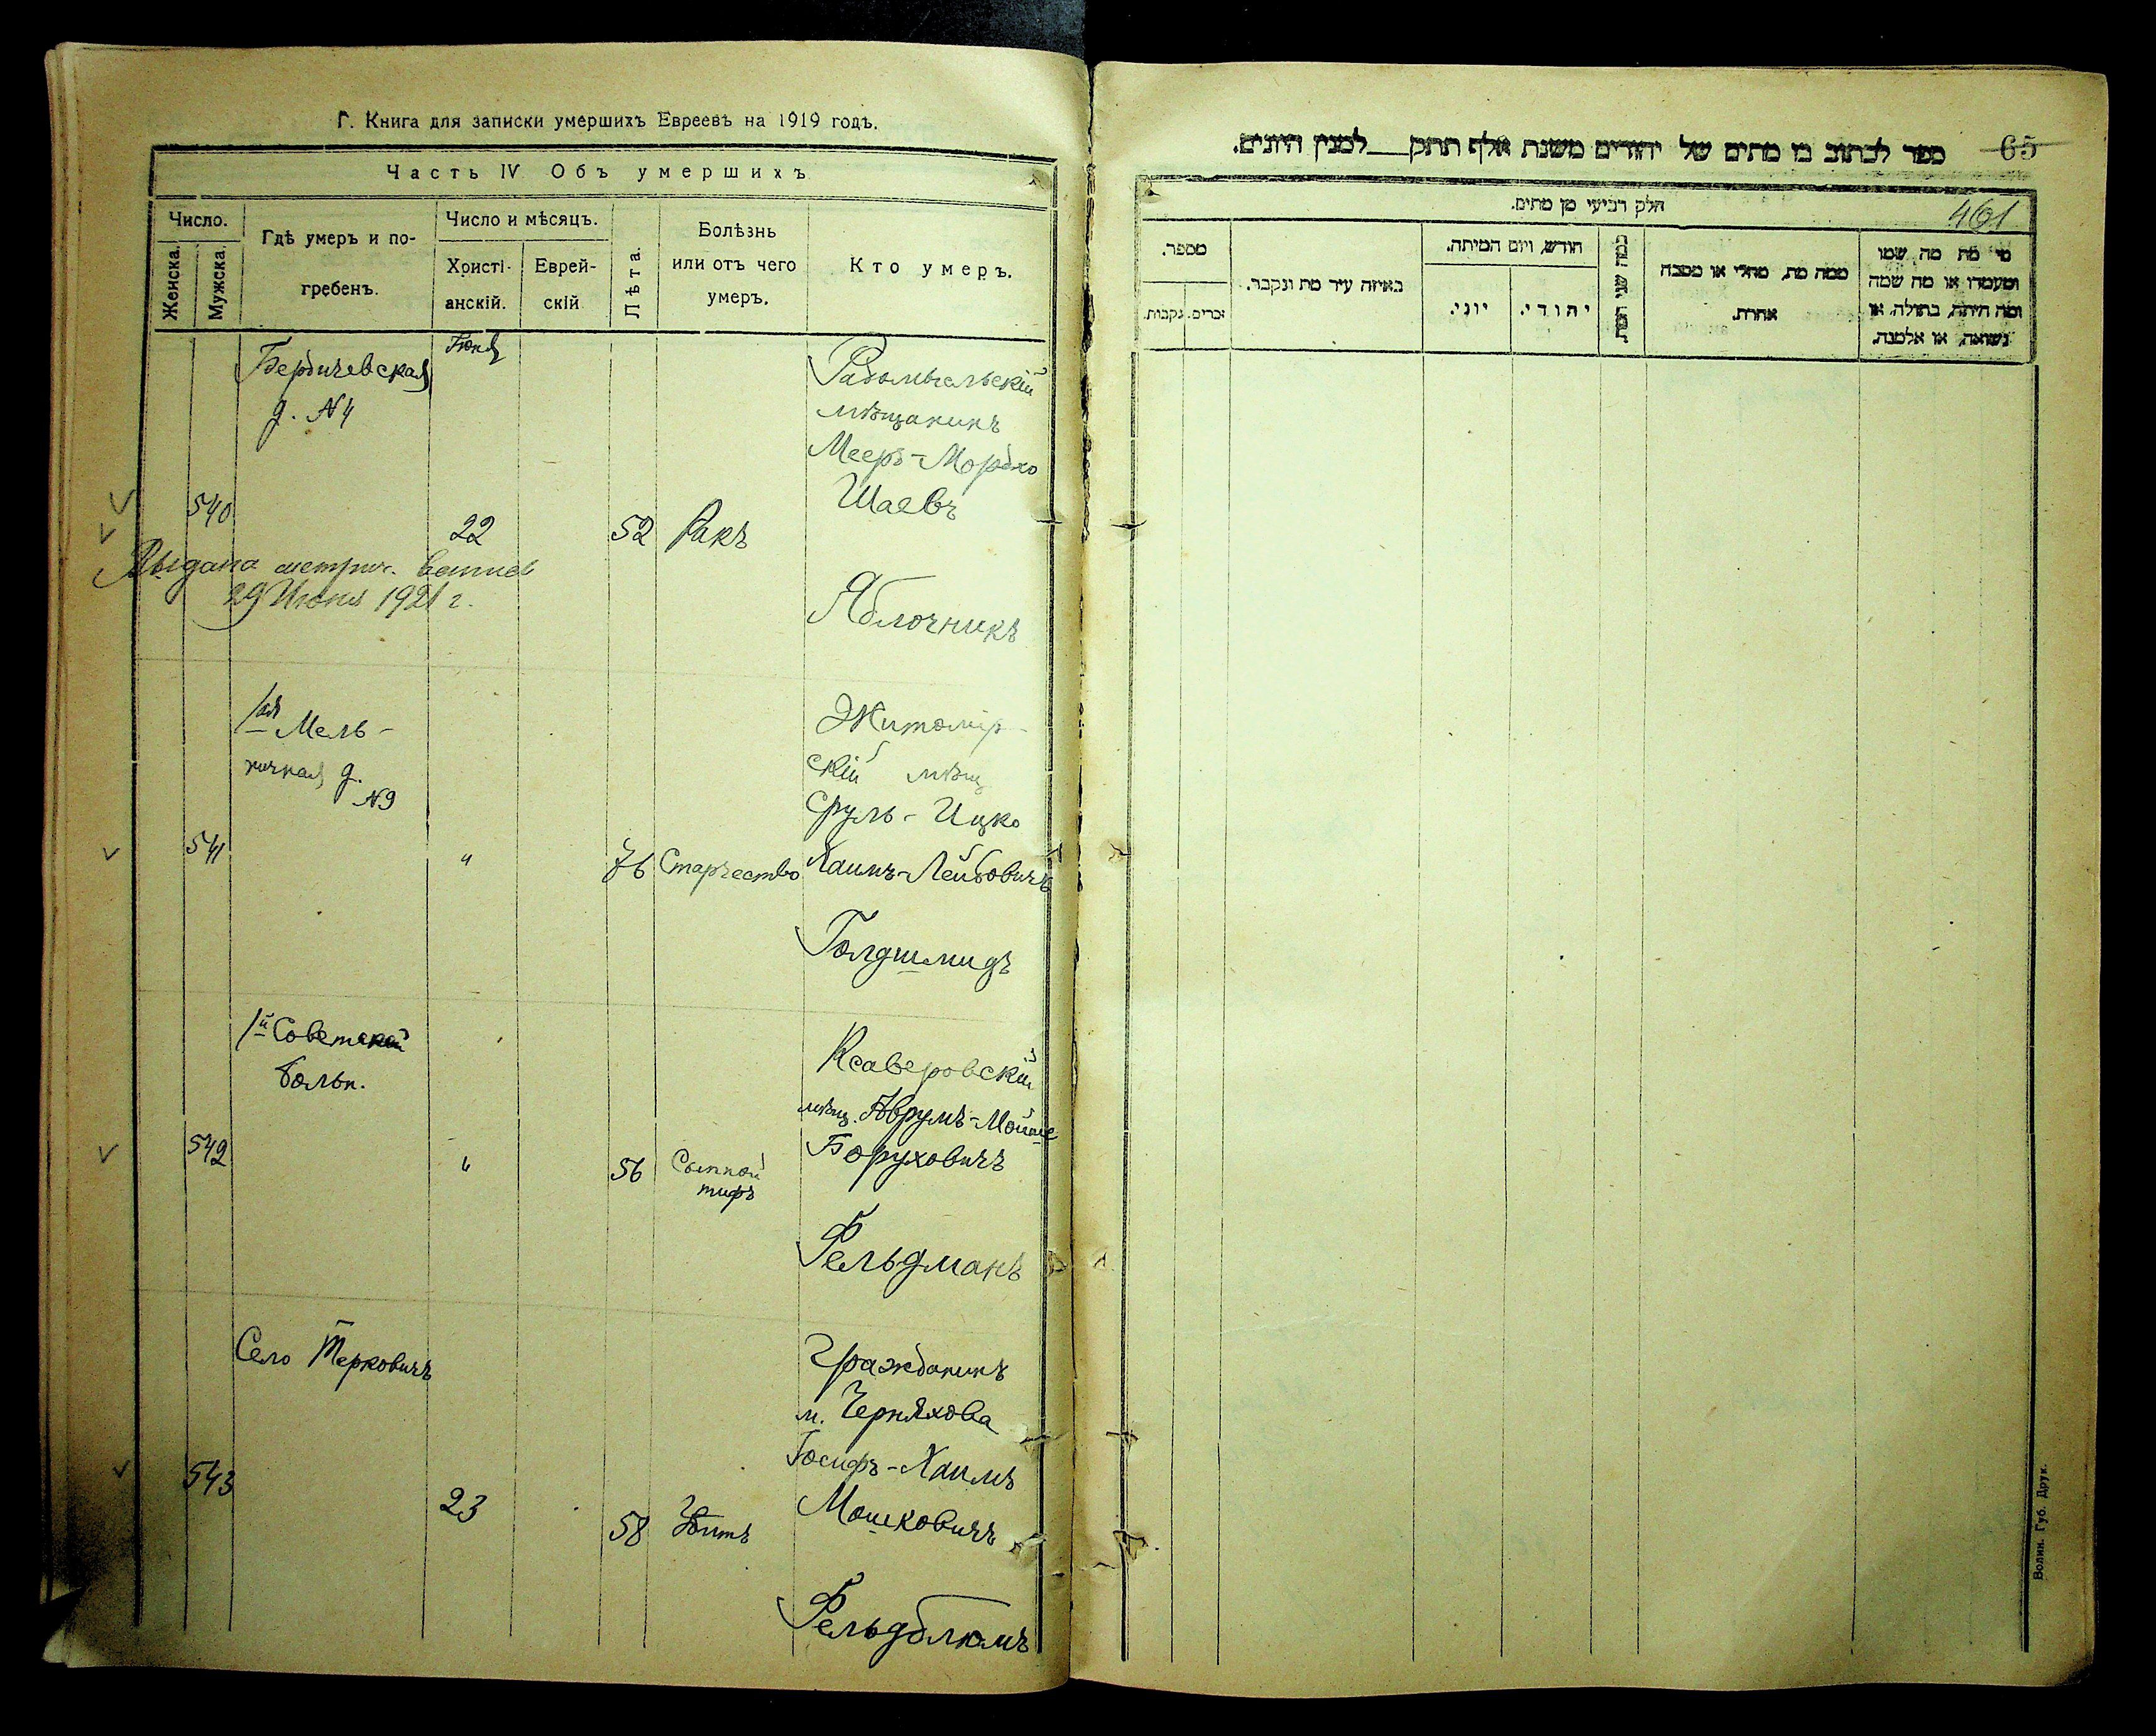 Г. Книга для записки умершихъ Евреевъ на 1919 годъ.
Часть IV Объ умершихъ
Число.
Женска.
Мужска.
Гдѣ умеръ и по-
гребенъ.
Число и мѣсяцъ.
Христі-
анскій.
Еврей-
скій
Лѣта.
Болѣзнь
или отъ чего
умеръ.
Кто умеръ.
Бердичевская
д. №4
540
22
52
Ракъ
Радомысльскій
мѣщанинъ
Мееръ-Мордко
Шаевъ
Яблочникъ
Выдана метрич.
29 Июня 1921 г.
1ая Мель-
ничная д.
№9
541
"
76
Старчество
Житомір-
скій мѣщ
Сруль-Ицко
Хаимъ-Лейбовичъ
Голдшмидъ
1й Советской
больн.
542
"
56
Сыпной
тифъ
Ксаверовскій
мѣщ. Аврумъ-Мойше
Боруховичъ
Фельдманъ
Село Терковичъ
543
23
58
Убитъ
Гражданинъ
м. Черняхова
Іосифъ-Хаимъ
Мошковичъ
Фельдблюмъ
ספר לכתוב בו מתים של יהודים משנת אלף תתק___למנין היונים.
65
461
חלק רביעי מן מתים.
מספר.
זכרים.
נקבות.
באיזה עיר מת ונקבר.
חודש, ויום המיתה.
יוני.
יהודי.
כמה שני המת
ממה מת, מחלי או מסבה
אחרת.
מי מת מה שמו
ומעמדו או מה שמה
ומה היתה, בתולה, או
נשואה, או אלמנה.
Волин. Губ. Друк.